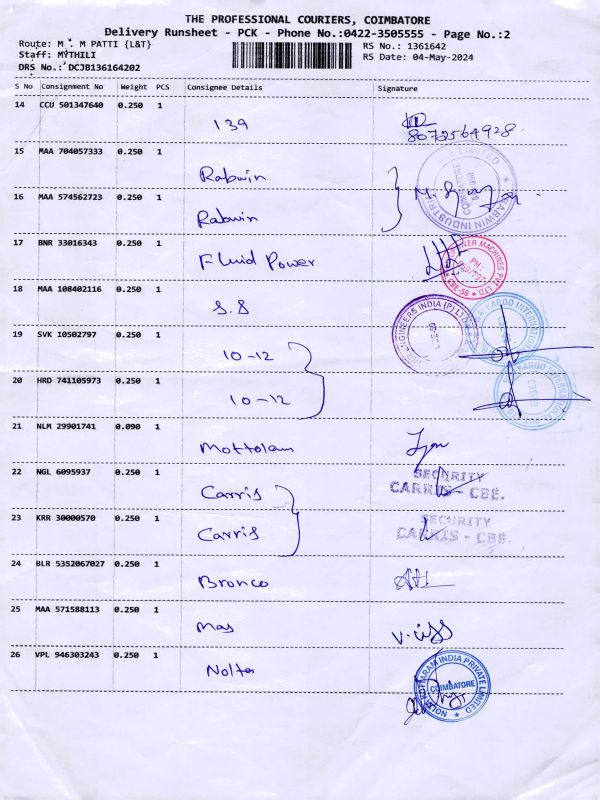 THE PROFESSIONAL COURIERS, COIMBATORE
Delivery Runsheet - PCK - Phone No.:0422-3505555 - Page No.:2
Route: M . M PATTI {L&T}
RS No.: 1361642
Staff: MYTHILI
RS Date: 04-May-2024
DRS No.: DCJB136164202
S No Consignment No Weight PCS Consignee Details Signature
14 CCU 501347640 0.250 1
139
8072564928
15 MAA 704057333 0.250 1
Rabwin
16 MAA 574562723 0.250 1
Rabwin
RABWIN INDUSTRIES
LIMITED
COIMBATORE
17 BNR 33016343 0.250 1
Fluid Power
POWER MACHINES PVT. LTD.
18 MAA 108402116 0.250 1
S.S
ENGINEERS INDIA (P) LTD
19 SVK 10502797 0.250 1
10-12
KAROO INTERNATIONAL
20 HRD 741105973 0.250 1
10-12
KAROO INTERNATIONAL
21 NLM 29901741 0.090 1
Mottolam
22 NGL 6095937 0.250 1
Carris
SECURITY
CARRIS - CBE.
23 KRR 30000570 0.250 1
Carris
SECURITY
CARRIS - CBE.
24 BLR 5352067027 0.250 1
Bronco
25 MAA 571588113 0.250 1
Mas
26 VPL 946303243 0.250 1
Nolta
INDIA PRIVATE LIMITED
COIMBATORE